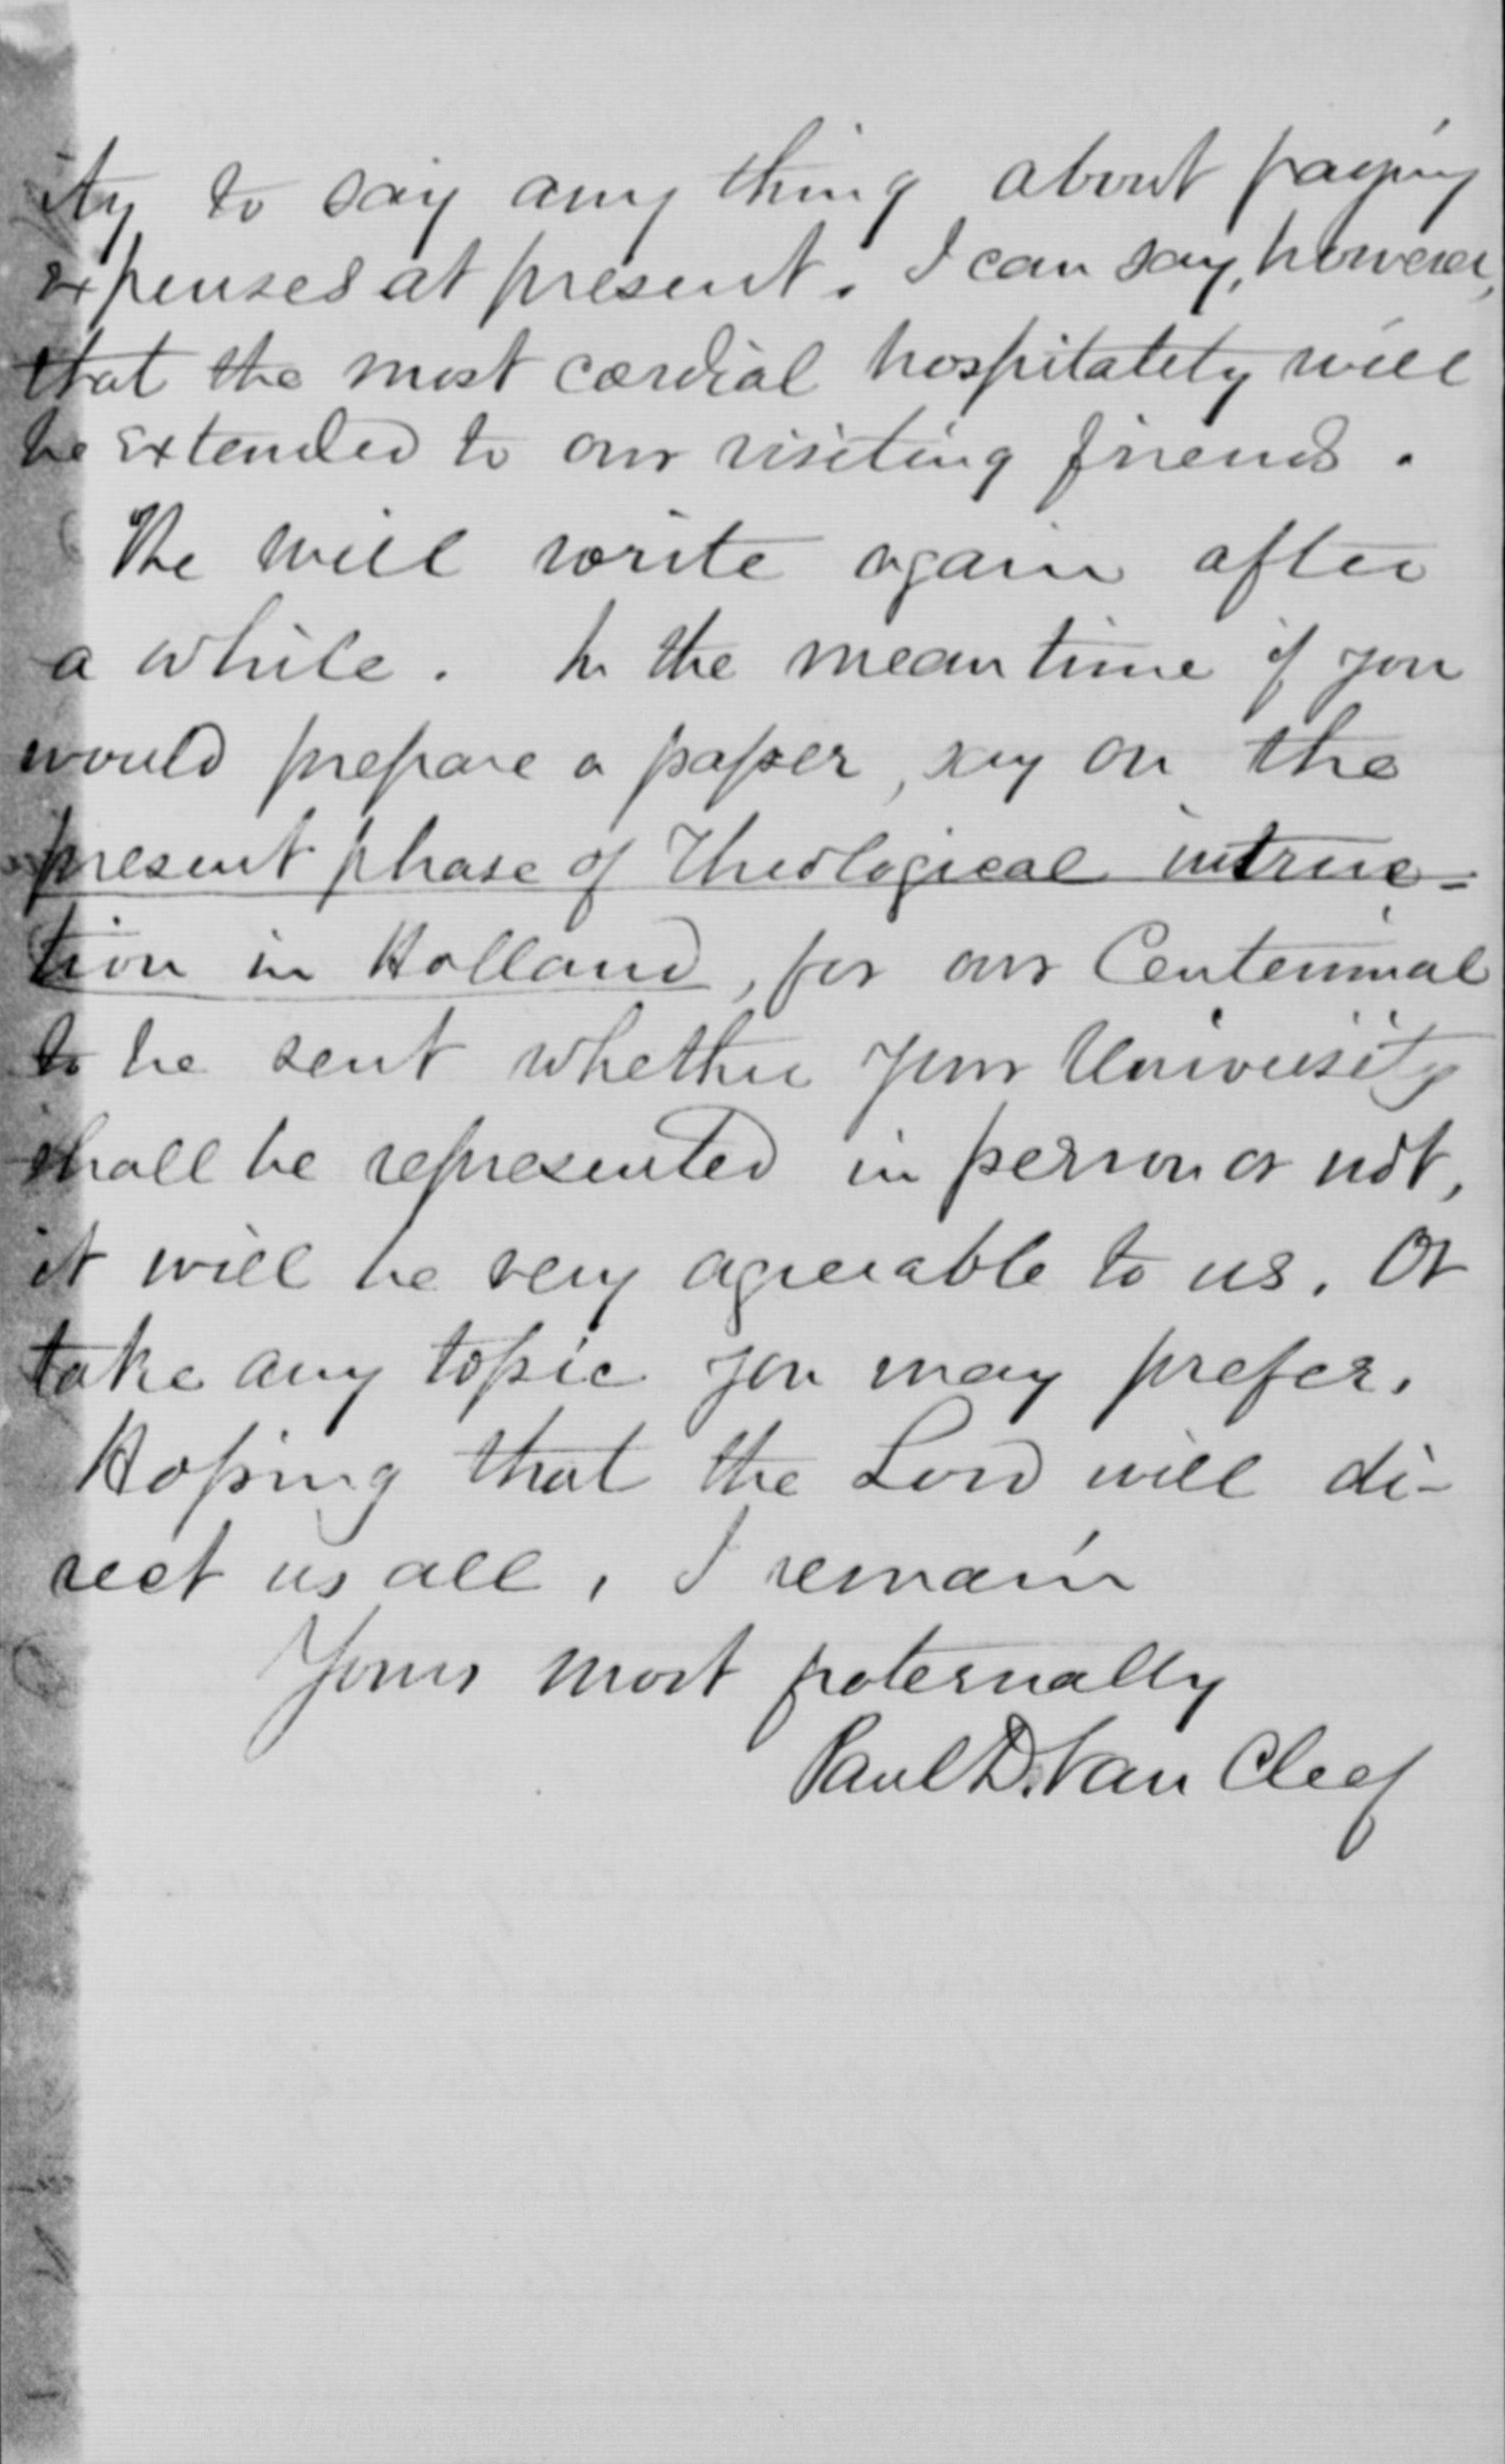 ity to say any thing about paying
expenses at present. I can say, however,
that the most cordial hospitatety will
be extended to our visiting friends.
We will write again after
a while. In the mean time if you
would prepare a paper, say on the
present phase of Theological intruc-
tion in Holland, for our Centennial
to be sent whether your University
shall be represented in person or not,
it will be very agreeable to us. Or
take any topic you may prefer.
Hoping that the Lord will di-
rect us all, I remain
Yours most fraternally
Paul D. Van Cleef